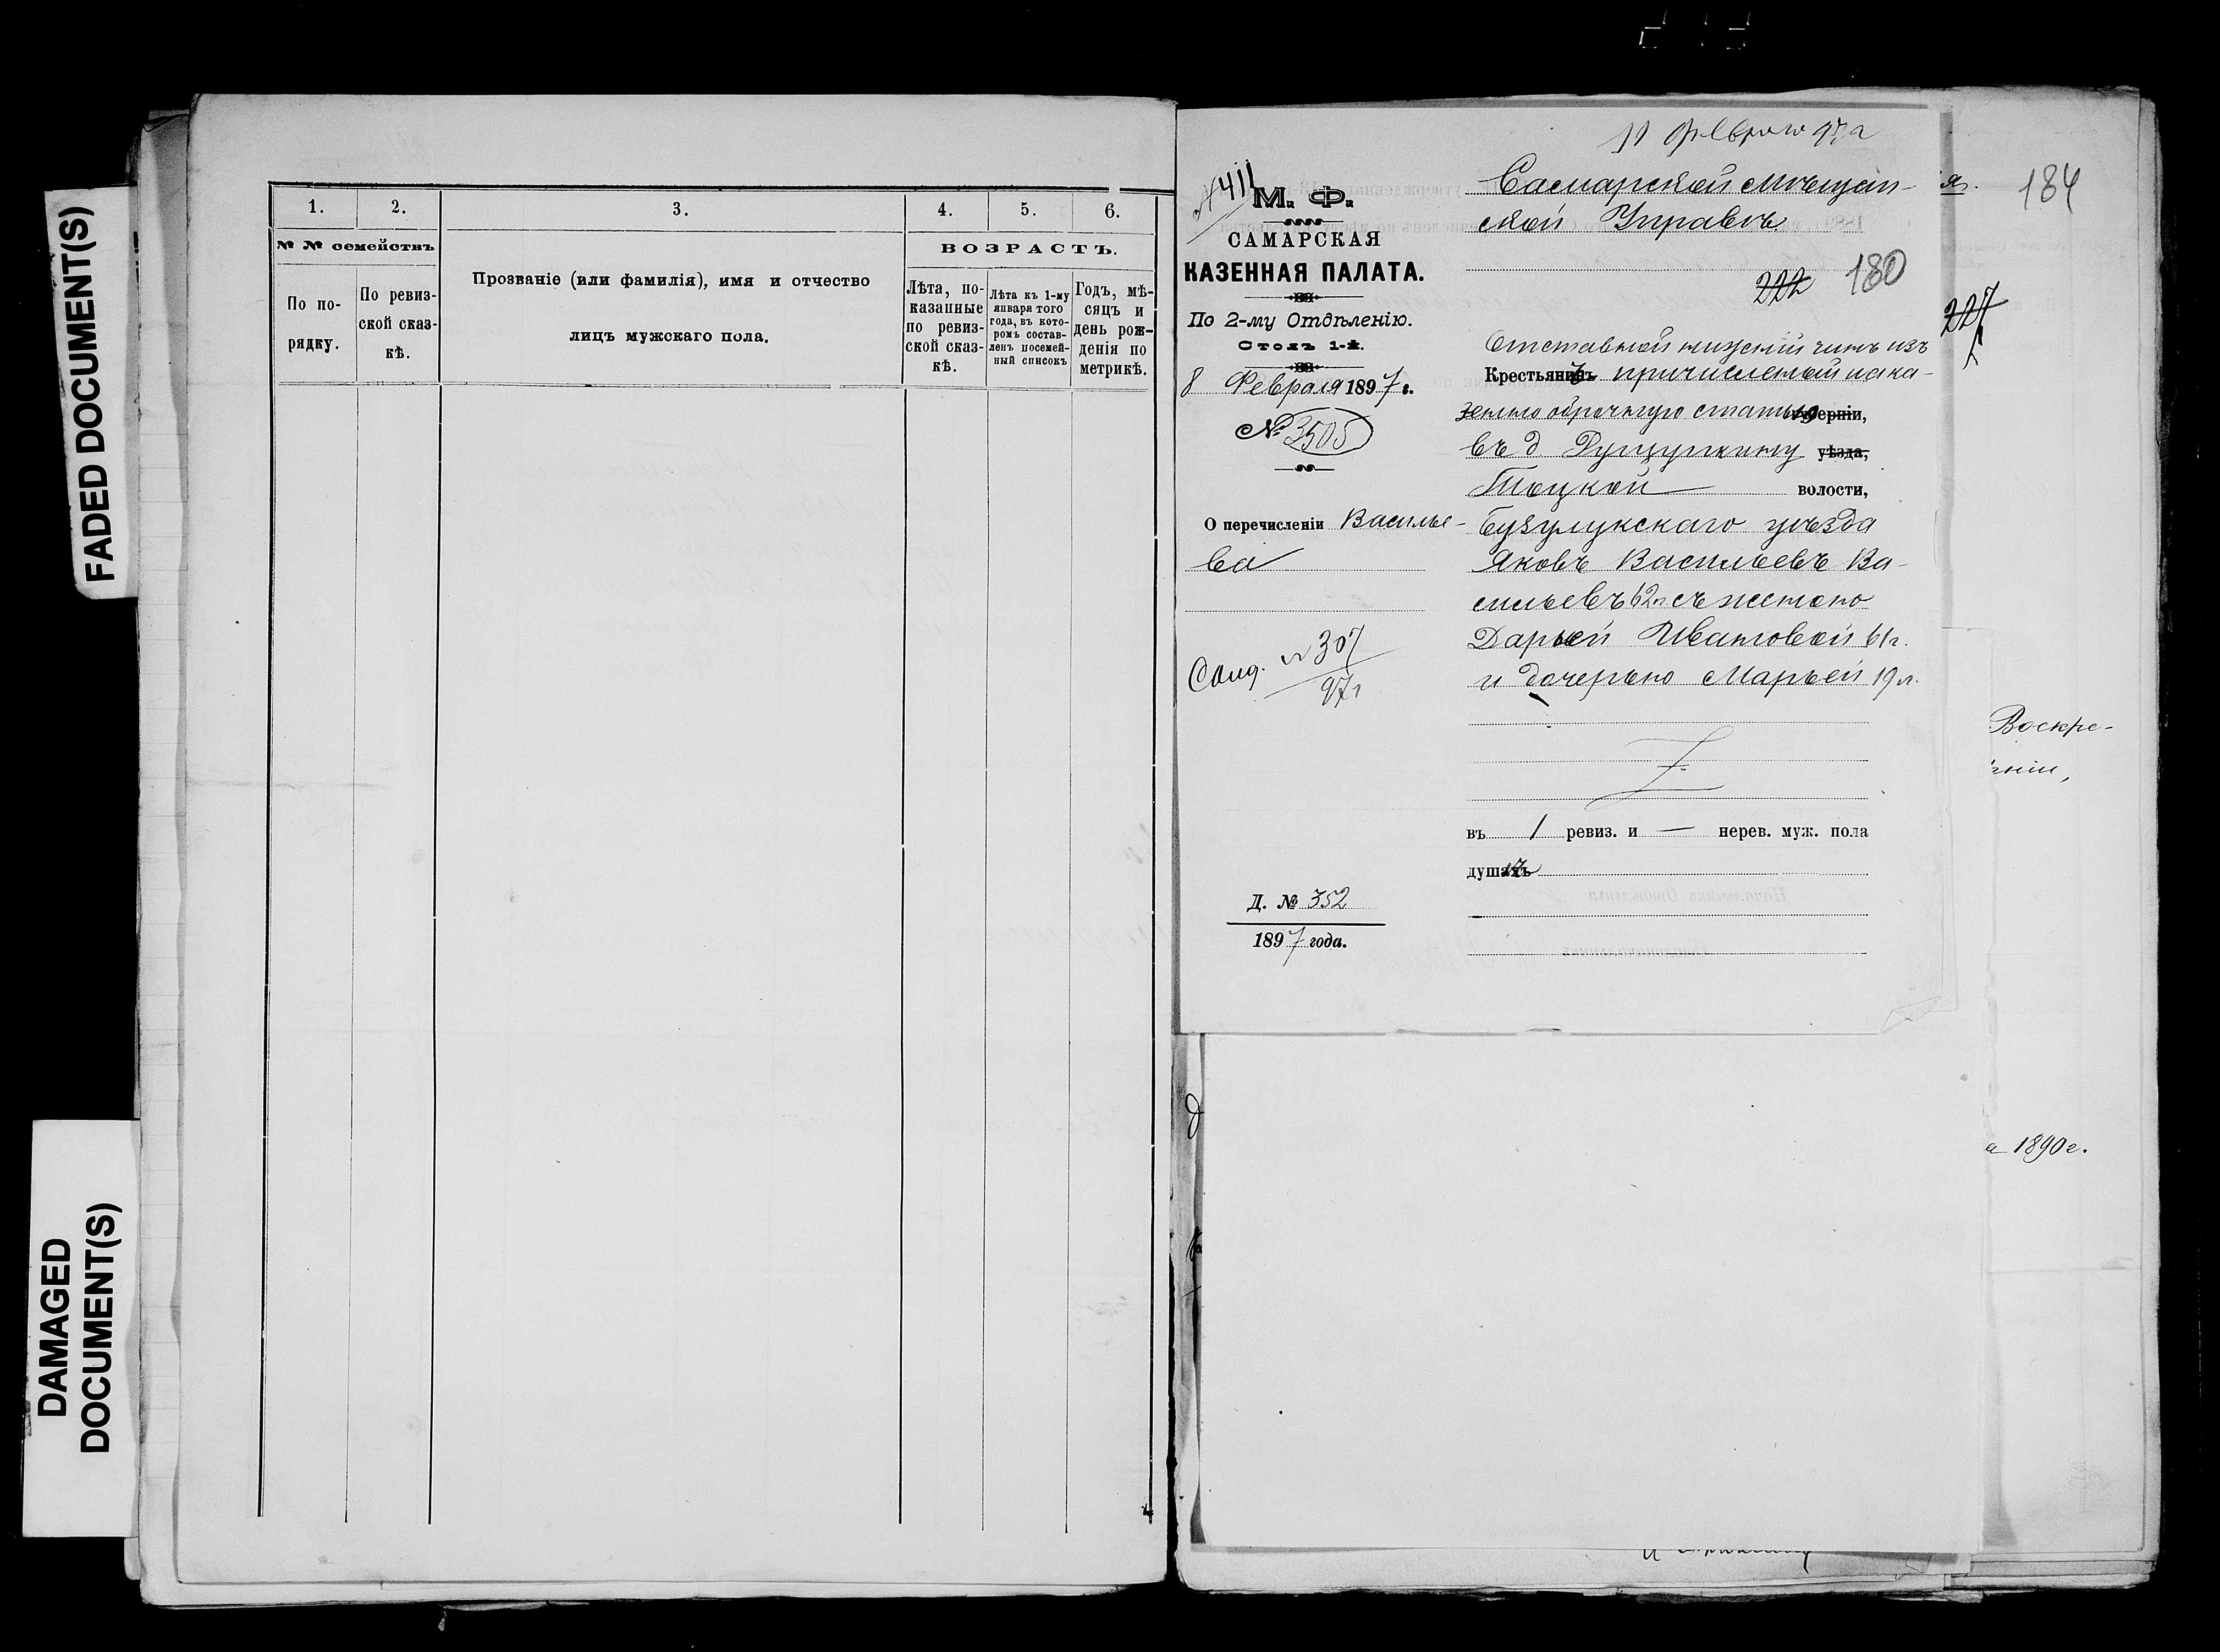 FADED DOCUMENT(S)
DAMAGED
DOCUMENT(S)
1. 2. 3. 4. 5. 6.
№ № семействъ
ВОЗРАСТЪ.
По по-
рядку.
По ревиз-
ской сказ-
кѣ.
Прозваніе (или фамилія), имя и отчество
лицъ мужскаго пола.
Лѣта, по-
казанные
по ревиз-
ской сказ-
кѣ.
Лѣта къ 1-му
января того
года, въ кото-
ромъ состав-
ленъ посемей-
ный список
Годъ, мѣ-
сяцъ и
день рож-
денія по
метрикѣ.
11 февраля 97 г
№411
М. Ф.
САМАРСКАЯ
КАЗЕННАЯ ПАЛАТА.
По 2-му Отдѣленію.
Столъ 1-й.
8 Февраля 1897 г.
№ 3505
О перечисленіи Василье-
ва
№ 307
97 г
Д. № 352
1897 года.
Самарской мѣщан-
ской Управѣ
222 180
Отставной нижній чинъ изъ
Крестьянъ причисленный на ка-
зенную оброчную статью губерніи,
въ д уѣзда,
Тоцкой волости,
Бузулукскаго уѣзда
Яковъ Васильевъ Ва-
сильевъ 62 л съ женою
Дарьей Ивановой 61 г.
и дочерью Марьей 19 л.
въ 1 ревиз. и — нерев. муж. пола
душѣ
я.
184
227
Воскре-
ніи,
а 1890 г.